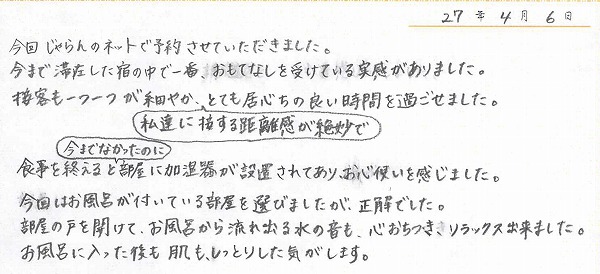 27年 4月 6日
今回じゃらんのネットで予約させていただきました。
今まで滞在した宿の中で一番、おもてなしを受けている実感がありました。
接客も一つ一つが細やか、とても居心ちの良い時間を過ごせました。
私達に接する距離感が絶妙で
今までなかったのに
食事を終えると部屋に加湿器が設置されてあり、お心使いを感じました。
今回はお風呂が付いている部屋を選びましたが、正解でした。
部屋の戸を開けて、お風呂から流れ出る水の音も、心おちつき、リラックス出来ました。
お風呂に入った後も肌も、しっとりした気がします。